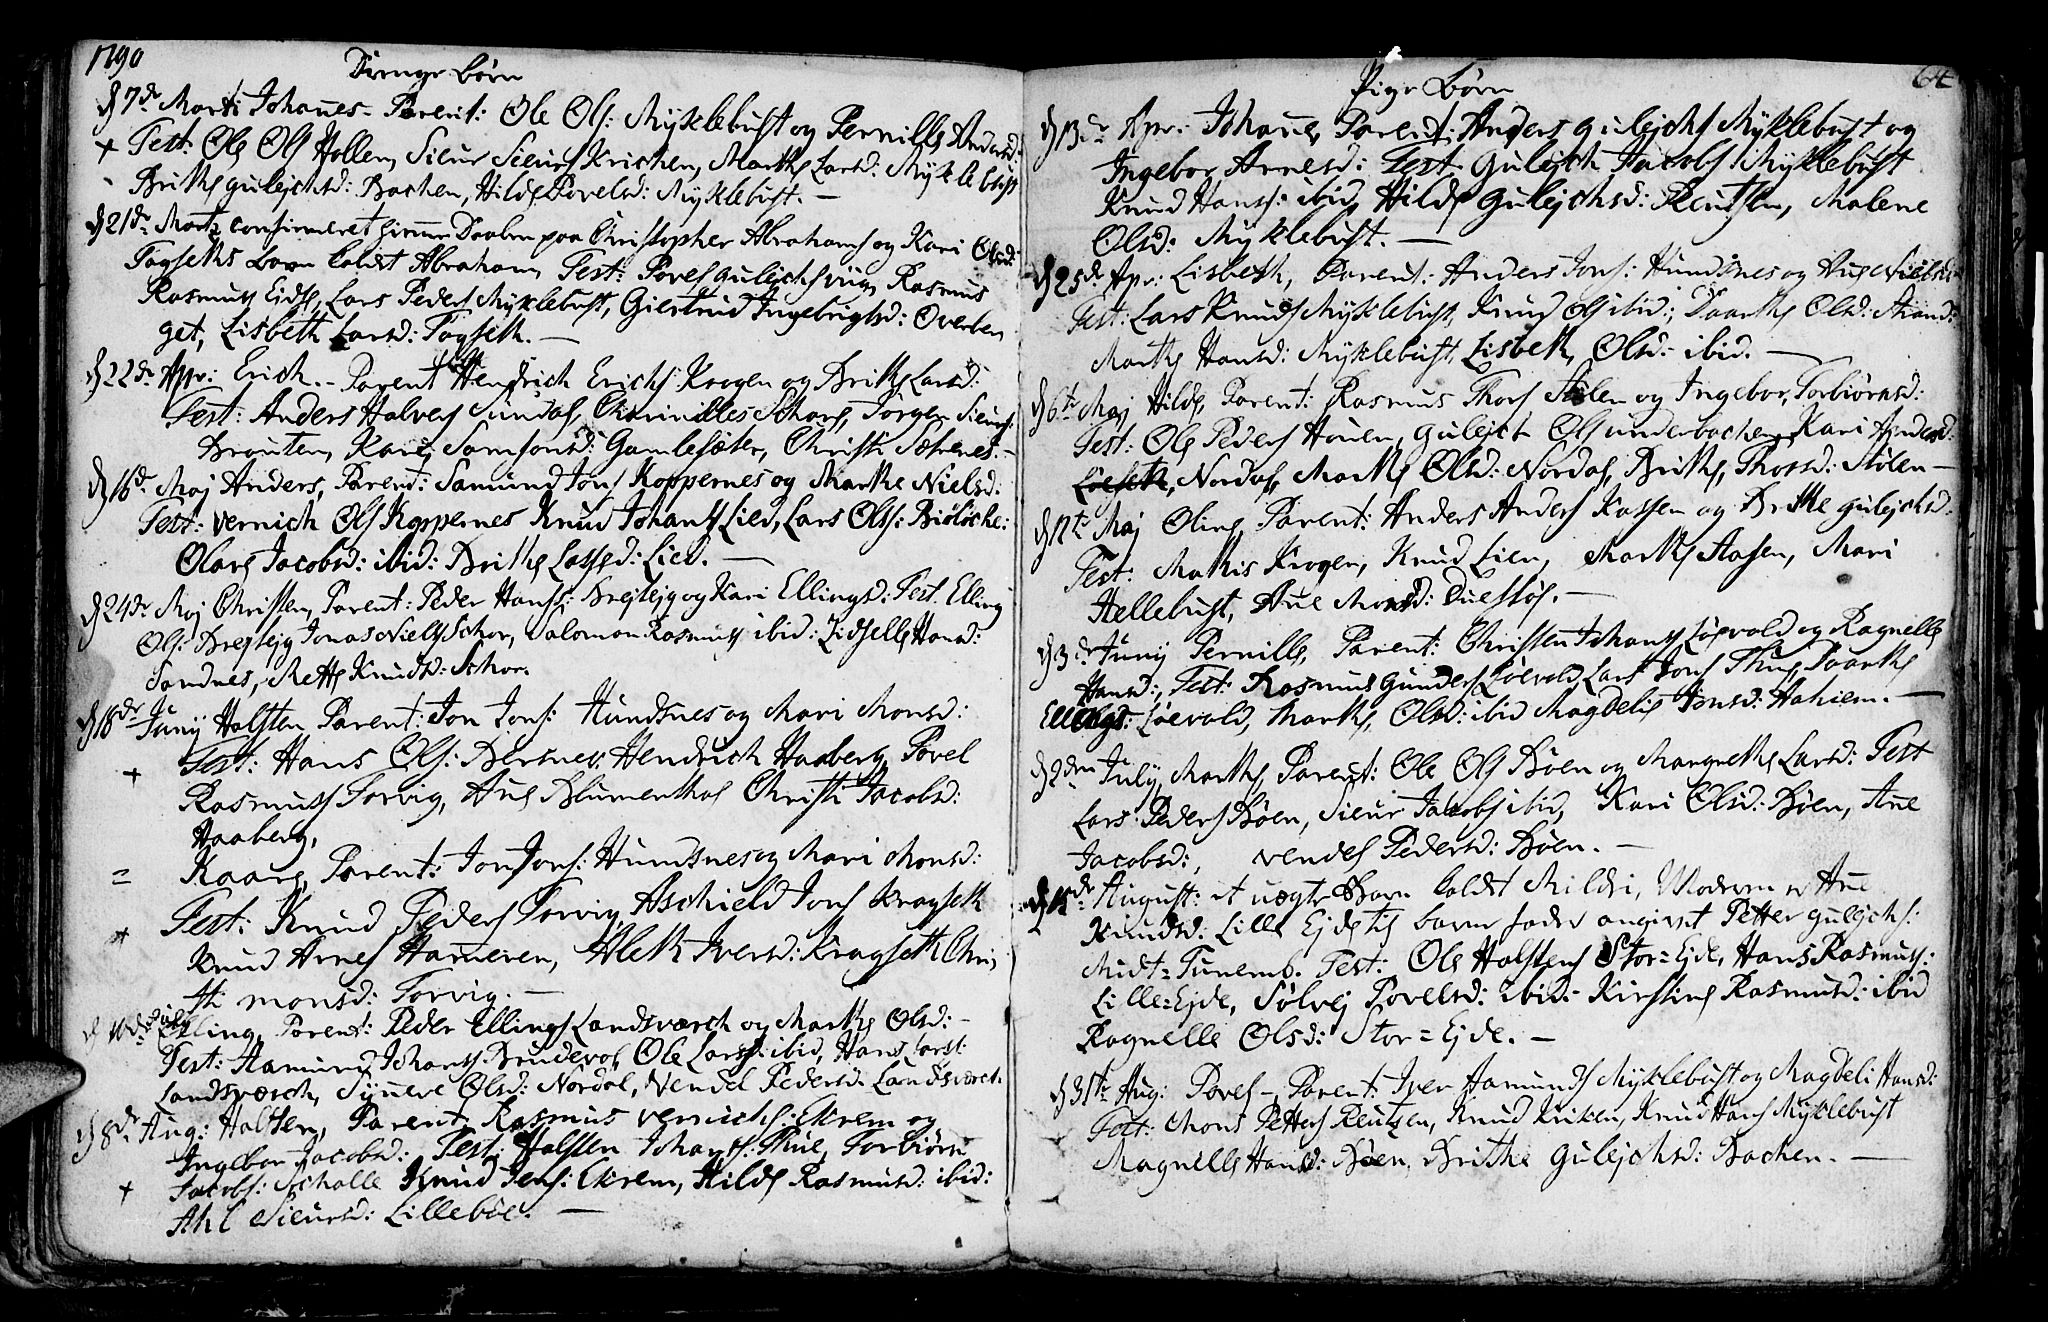 1790
Drenge Børn
d 7de Marti Johanes - Parent: Ole Ols: Myklebust og Pernille Andersd:
+ Test: Ole Ols Hollen, Siur Siurs Kirchen, Marthe Larsd: Myklebust
Brithe gulejchsd: Bachen, Hilde Povelsd: Myklebust. —
d 21de Marti confirmeret hiemme Daaben paa Christopher Abrahams og Kari Olsd:
Fogseths barn kaldt Abraham, Test: Povel gulejchs viig, Rasmus
Rasmuss Ejde, Lars Peders Myklebust, Giertrud Ingebrigtsd: Overben
get, Lisbeth Larsd: Fogseth. —
d 22de Apr: Erich. - Parent Hendrich Erichs: Krogen og Brithe Larsd:
Test: Anders Halvers Sundal, Schare, Jørgen Siurs:
Brouten, Kari Samsonsd: Gamlesæter, Christi Sætrenes. —
d 16de Maj Anders, Parent: Samund Jons Koppernes og Marthe Nielsd:
Test: Vernich Ols Koppernes Knud Johans Lied, Lars Olss: Bioløche:
Olave Jacobsd: ibid: Brithe Lassed: Lied. —
d 24de Maj Christen, Parent: Peder Hanss: Brejtejg og Kari Ellingsd: Test. Elling
Ols: Brejtejg Jonas Niels Schor, Salomon Rasmuss ibid: Zidselle Hansd:
Sandnes, Mette Knudsd: Schor.
d 18de Junij Halsten, Parent: Jon Jons: Hundsnes og Mari Monsd:
+ Test: Hans Ols: Bersnes, Hendrich Haaberg, Povel
Rasmuss Torvig, Ane Blumenthal Christi Jacobsd:
Haaberg,
= Kaare, Parent: Jon Jons: Hundsnes og Mari Monsd:
+ Test: Knud Peders Torvig Aschield Jons Kragseth
Knud Arnes Hameren, Aleth Iversd: Kragseth Chri
sti monsd: Torvig. —
d 10de July Elling, Parent: Peder Ellings Landsværch og Marthe Olsd: -
Test: Hamund Johans Brudevol, Ole Larss: ibid, Hans Larss:
Landsværch, Synneve Olsd: Nordal, Vendel Pedersd. Landsværch.
d 8de Aug: Halsten, Parent, Rasmus Vernichs: Ekrem og
Ingebor Jacobsd: Test: Halsten Johans: Thue, Torbiørn
+ Jacobs: Scholle Knud Jens: Ekrem, Hilde Rasmusd: ibid:
Ahl Siursd: Lillebøe. —
64
Pige Børn
d 13de Apr: Johane, Parent: Anders gulejchs Myklebust og
Ingebor Arnesd: Test gulejch Jacobs Myklebust
Knud Hanss: ibid, Hilde gulejchsd: Reutsen, Malene
Olsd: Myklebust. —
d 25de Apr: Lisbeth, Parent: Anders Jons: Hundsnes og Ane Nielsd:
Test: Lars Knuds Myklebust, Knud Ols ibid:, Daarthe Olsd: Strand:
Marthe Hansd: Myklebust, Lisbeth Olsd: ibid. —
d 6te Maj Hilde, Parent: Rasmus Thors Stølen og Ingebor, Torbiørnsd:
Test: Ole Peders Houen, gulejch Ols underbachen, Kari Andersd:
Nordal, Marthe Olsd: Nordal, Brithe, Thorsd: Stølen —
d 12te Maj Oline, Parent: Anders Anders Kassen og Brithe gulejchsd:
Test: Mathis Krogen, Knud Lien, Marthe Aasen, Mari
Hellebust, Ane Monsd: Duesføs. —
d 3de Junij Pernille, Parent: Christen Johans Løevold og Ragnelle
Hansd:, Test: Rasmus gunders Løevold, Lars Jons Thue, Daarthe
Ellingsd: Løevold, Marthe, Olsd: ibid Magdeli Jonsd: Hahiem. —
d 2den July, Marthe, Parent: Ole Ols Bøen og Margrethe Larsd: Test
Lars Peders Bøen, Siur Jacobs ibid, Kari Olsd: Bøen, Ane
Jacobsd:, Vendel Pedersd: Bøen. —
August: et uægte Barn kaldt Mildri, Moderen er Ane
Knudsd: Lille Ejde til barne fader angivet Petter gulejchs:
Midt=Tunemb. Test: Ole Halstens Stor=Ejde, Hans Rasmuss:
Lille=Ejde, Sølvej Povelsd: ibid: Kirstine Rasmusd: ibid
Ragnelle Olsd: Stor=Ejde. —
d 31te Aug: Povel -, Parent: Iver Hamunds Myklebust og Magdeli Hansd:
Test: Mons Petters Reutzen, Knud Kirken, Knud Hans Myklebust
Magnelle Hansd: Bøen, Brithe gulejchsd: Bachen. —